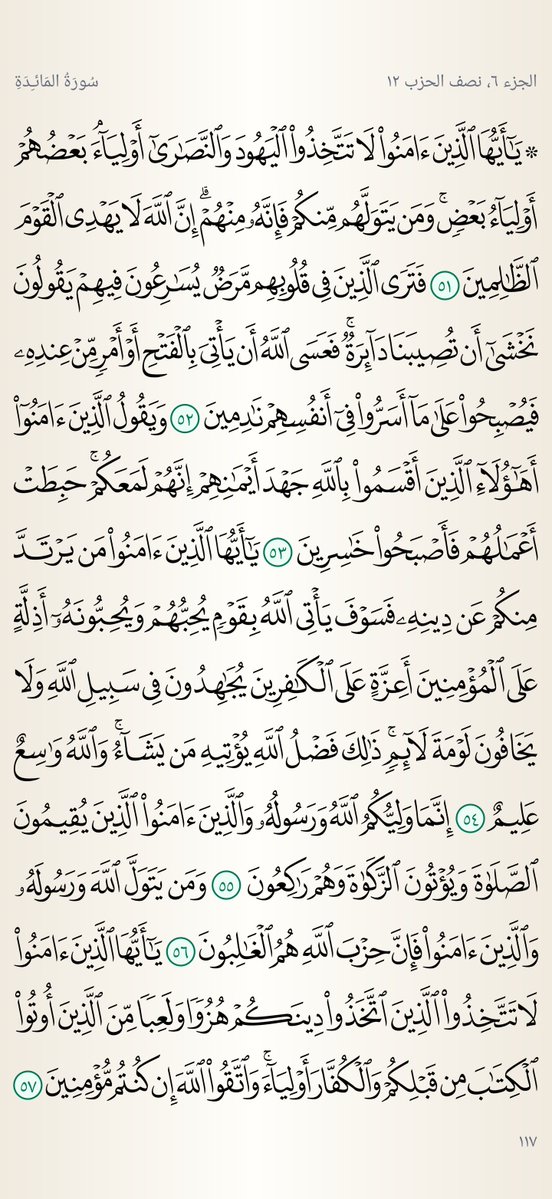 الجزء ٦، نصف الحزب ١٢
سُورَةُ المَائـِدَةِ
۞ يَٰٓأَيُّهَا ٱلَّذِينَ ءَامَنُوا۟ لَا تَتَّخِذُوا۟ ٱلْيَهُودَ وَٱلنَّصَٰرَىٰٓ أَوْلِيَآءَۘ بَعْضُهُمْ
أَوْلِيَآءُ بَعْضٍۚ وَمَن يَتَوَلَّهُم مِّنكُمْ فَإِنَّهُۥ مِنْهُمْۗ إِنَّ ٱللَّهَ لَا يَهْدِى ٱلْقَوْمَ
ٱلظَّٰلِمِينَ ٥١ فَتَرَى ٱلَّذِينَ فِى قُلُوبِهِم مَّرَضٌ يُسَٰرِعُونَ فِيهِمْ يَقُولُونَ
نَخْشَىٰٓ أَن تُصِيبَنَا دَآئِرَةٌۚ فَعَسَى ٱللَّهُ أَن يَأْتِىَ بِٱلْفَتْحِ أَوْ أَمْرٍ مِّنْ عِندِهِۦ
فَيُصْبِحُوا۟ عَلَىٰ مَآ أَسَرُّوا۟ فِىٓ أَنفُسِهِمْ نَٰدِمِينَ ٥٢ وَيَقُولُ ٱلَّذِينَ ءَامَنُوٓا۟
أَهَٰٓؤُلَآءِ ٱلَّذِينَ أَقْسَمُوا۟ بِٱللَّهِ جَهْدَ أَيْمَٰنِهِمْ إِنَّهُمْ لَمَعَكُمْۚ حَبِطَتْ
أَعْمَٰلُهُمْ فَأَصْبَحُوا۟ خَٰسِرِينَ ٥٣ يَٰٓأَيُّهَا ٱلَّذِينَ ءَامَنُوا۟ مَن يَرْتَدَّ
مِنكُمْ عَن دِينِهِۦ فَسَوْفَ يَأْتِى ٱللَّهُ بِقَوْمٍ يُحِبُّهُمْ وَيُحِبُّونَهُۥٓ أَذِلَّةٍ
عَلَى ٱلْمُؤْمِنِينَ أَعِزَّةٍ عَلَى ٱلْكَٰفِرِينَ يُجَٰهِدُونَ فِى سَبِيلِ ٱللَّهِ وَلَا
يَخَافُونَ لَوْمَةَ لَآئِمٍۚ ذَٰلِكَ فَضْلُ ٱللَّهِ يُؤْتِيهِ مَن يَشَآءُۚ وَٱللَّهُ وَٰسِعٌ
عَلِيمٌ ٥٤ إِنَّمَا وَلِيُّكُمُ ٱللَّهُ وَرَسُولُهُۥ وَٱلَّذِينَ ءَامَنُوا۟ ٱلَّذِينَ يُقِيمُونَ
ٱلصَّلَوٰةَ وَيُؤْتُونَ ٱلزَّكَوٰةَ وَهُمْ رَٰكِعُونَ ٥٥ وَمَن يَتَوَلَّ ٱللَّهَ وَرَسُولَهُۥ
وَٱلَّذِينَ ءَامَنُوا۟ فَإِنَّ حِزْبَ ٱللَّهِ هُمُ ٱلْغَٰلِبُونَ ٥٦ يَٰٓأَيُّهَا ٱلَّذِينَ ءَامَنُوا۟
لَا تَتَّخِذُوا۟ ٱلَّذِينَ ٱتَّخَذُوا۟ دِينَكُمْ هُزُوًا وَلَعِبًا مِّنَ ٱلَّذِينَ أُوتُوا۟
ٱلْكِتَٰبَ مِن قَبْلِكُمْ وَٱلْكُفَّارَ أَوْلِيَآءَۚ وَٱتَّقُوا۟ ٱللَّهَ إِن كُنتُم مُّؤْمِنِينَ ٥٧
١١٧